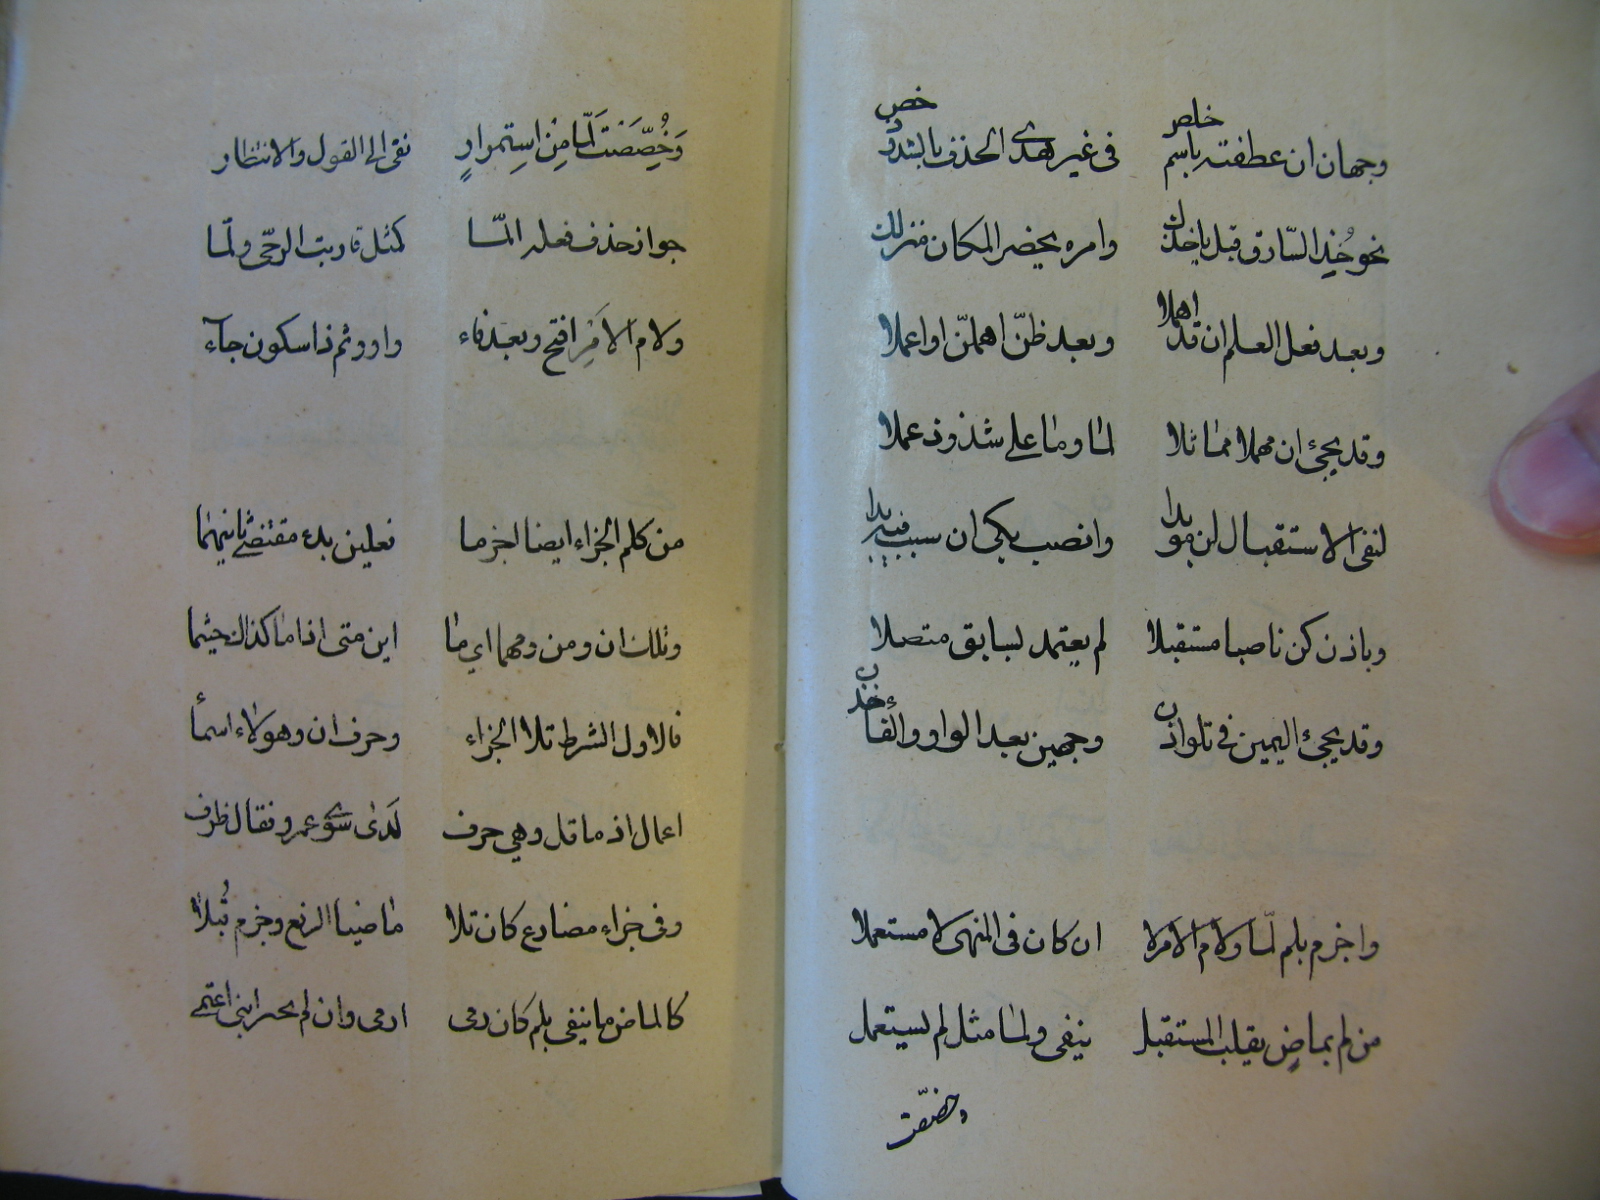 وجهان ان عطفته باسم خلص في غير هذي الحذف بالشذوذ خص
نحو خذ السارق قبل ياخذك وامره يحضر المكان منزلك
وبعد فعل العلم ان قد اهملا وبعد ظنّ اهملنّ او اعملا
وقد يجئ ان مهملا مماثلا لما وما على شذوذ عملا
لنفي الاستقبال لن مؤبدا وانصب بكي ان سببيه بدا
وباذن كن ناصبا مستقبلا لم يعتمد لسابق متصلا
وقد يجئ اليمين في تلو اذن وجهين بعد الواو والفاء خذن
واجزم بلم لمّا ولام الامر لا ان كان في النهي لا مستعملا
من لم بماضٍ يقلب المستقبل ينفي ولما مثل لم يستعمل
وخصّصت
وَخُصِّصَتْ لَمّا مِن اسِتِمرارٍ نفي الى القول والانتظار
جواز حذف فعله المّا كمثل قاربت الرحّى ولمّا
ولام الامْرِ افتح وبعد فاء واو وثم ذا سكون جآء
من كلم الجزاء ايضا اجزما فعلين بدء مقتضي ثانيهما
وتلك ان ومن ومهما اي ما اين متى اذاما كذاك حيثما
فالاول الشرط تلا الجزاء وحرف ان وهؤلاء اسمأ
اعمال اذ ما قل وهي حرف لَدى عمرو فقال ظرف
وفي جزاء مضارع كان تلا ماضيا الرفع وجزم قُبلا
كالماض ما ينفي بلم كان رمى ارمى وان لم ابني اعتمى